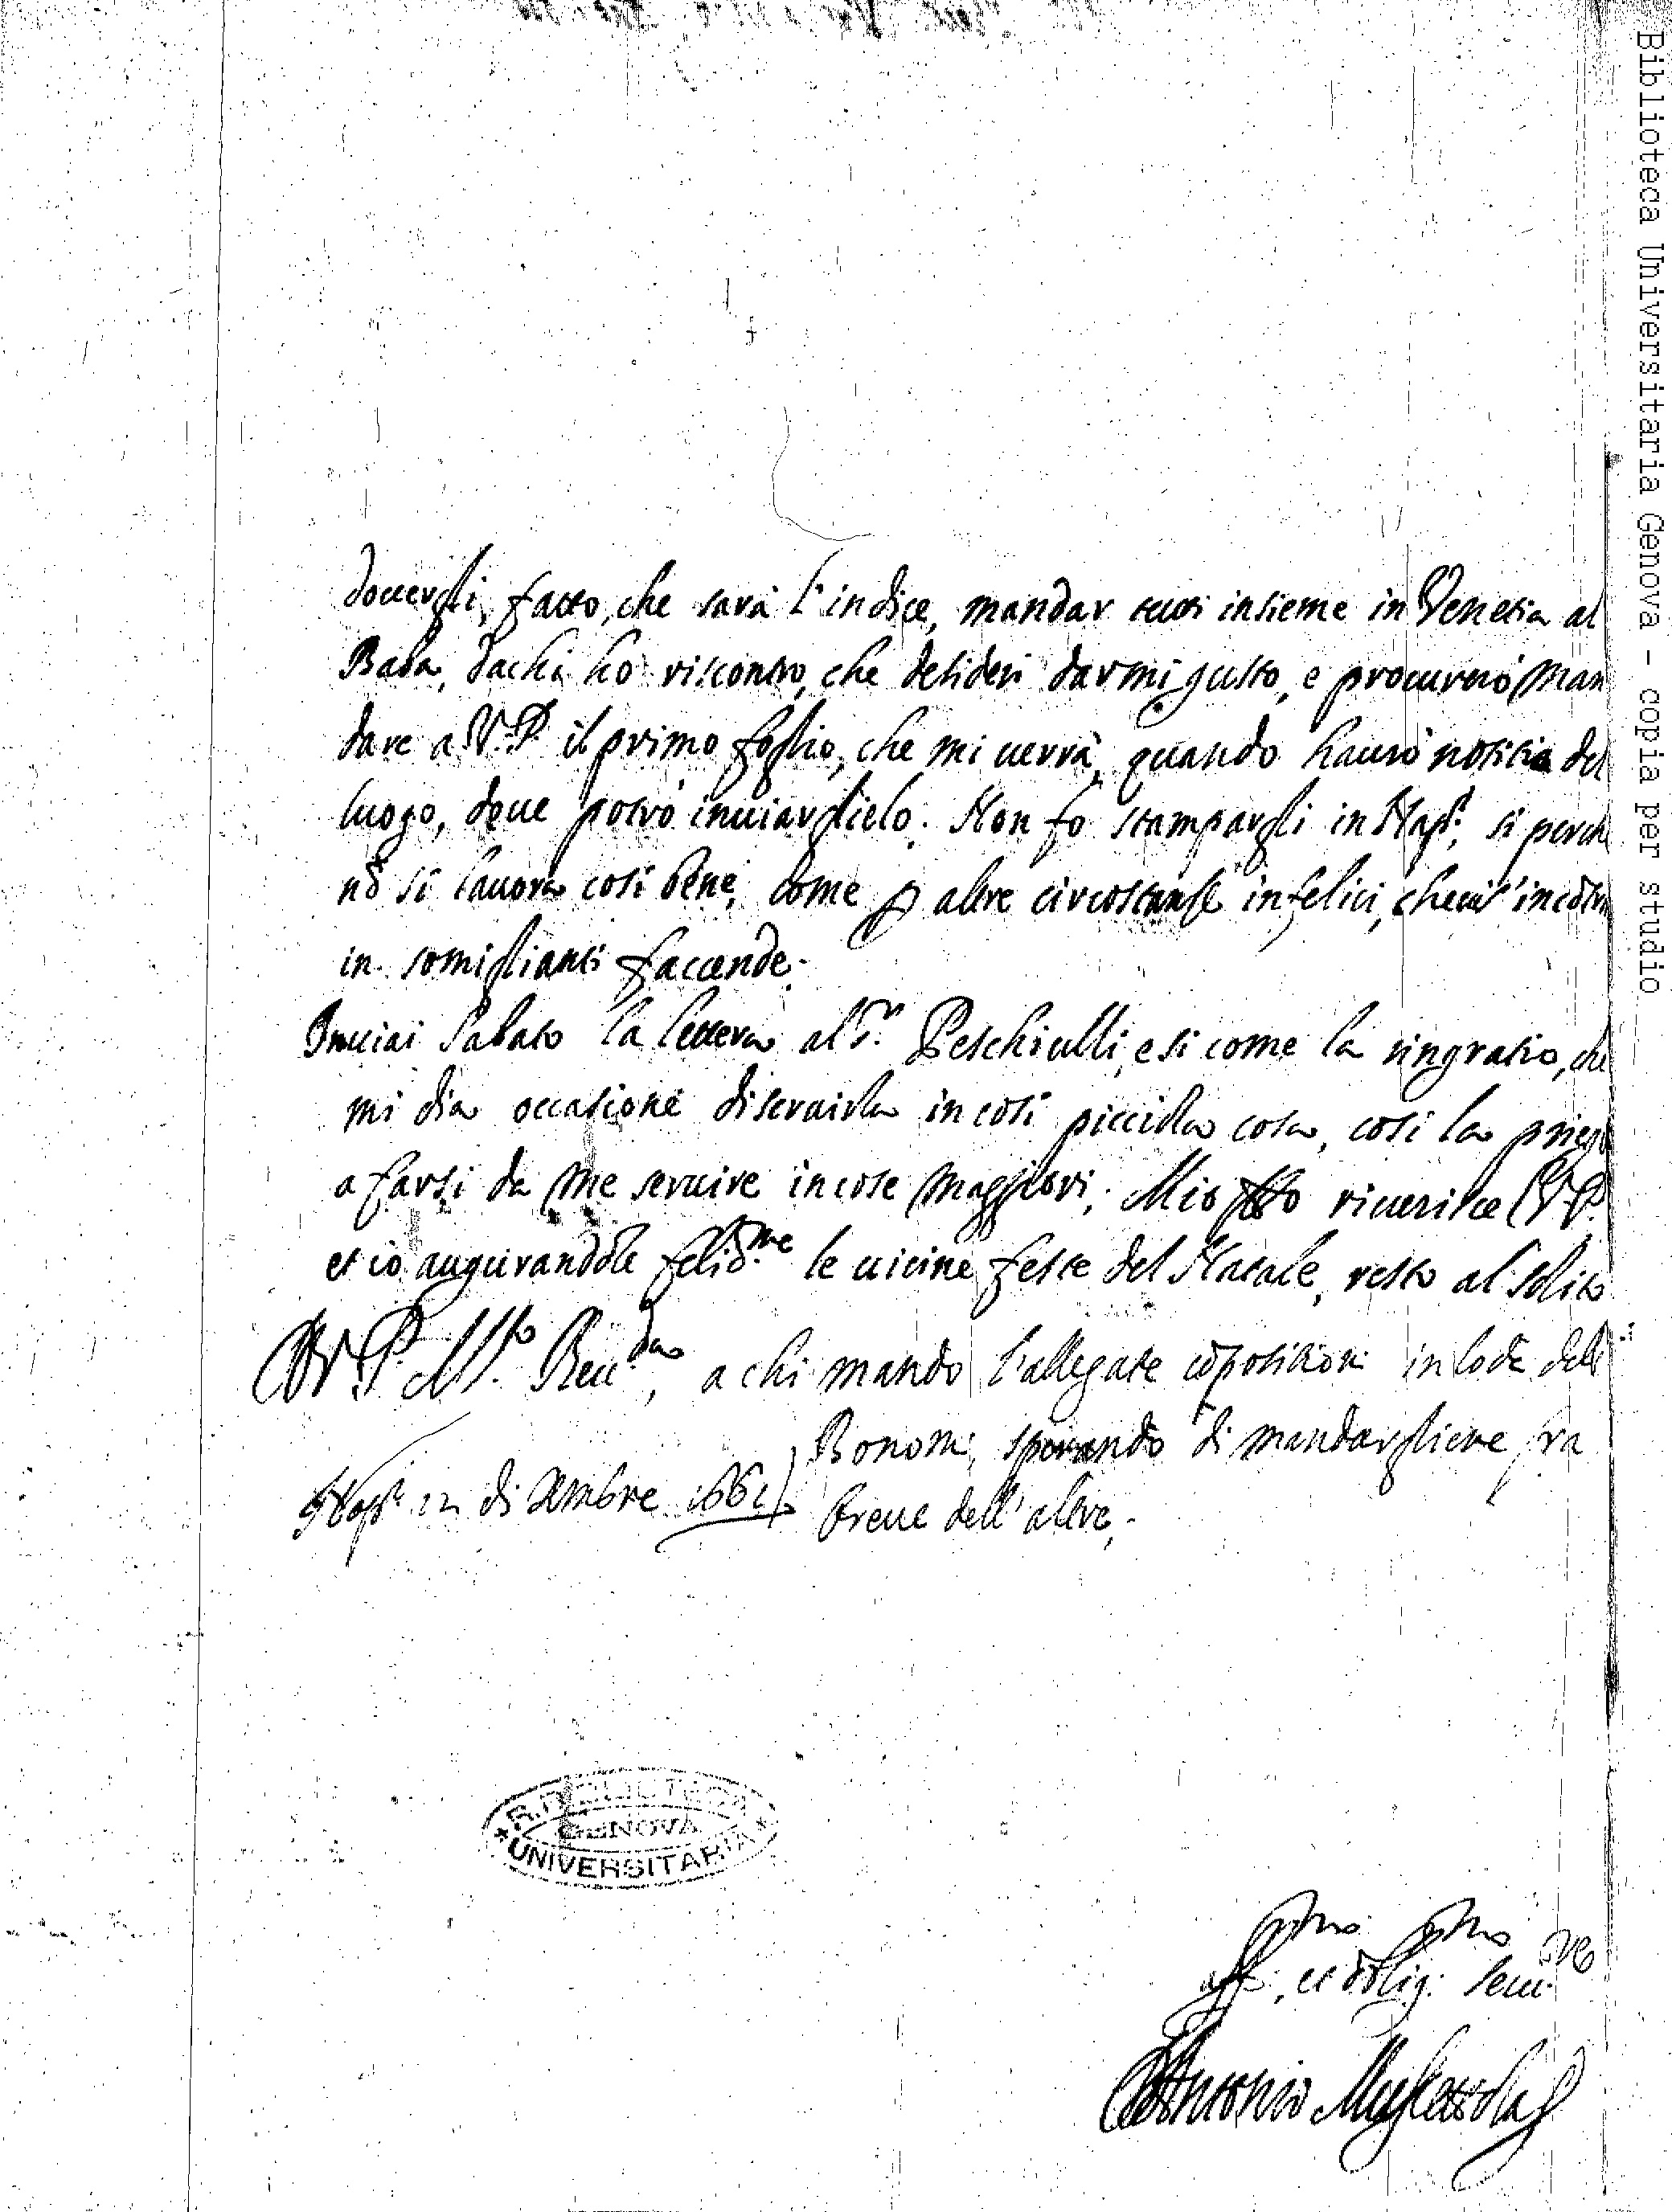 douergli, fatto, che sarà l'indice, mandar tutti insieme in Venetia al
Baba, dachi hò riscontro, che desideri darmi gusto, e procurerò man
dare a V. P. il primo foglio, che mi uerrà, quando haurò notitia del
luogo, doue potrò inuiarglielo. Non fo stampargli in Nap.ⁱ, si perche
nõ si lauora così bene, come altre circostanze infelici, in
in somiglianti faccende.
Inuiai Sabato la lettera al S.r Peschiulli, e si come la ringratio, che
mi dia occasione diseruirla in così picciola cosa, così la priego
a farsi da me seruire incose maggiori. Mio riuerisce V. P.
et io augurandole felic.me le uicine feste del Natale, resto al solito
D V. P. M.to Reu.da, a chi mando l'allegate cõpositioni in lode del
Bonomi, sperando di mandargliene fra
Nap.ⁱ 12 di Xmbre 1661 breue dell'altre.
aff. et oblig. seru.re
Antonio Muscettola
R. BIBLIOTECA
GENOVA
UNIVERSITARIA
Biblioteca Universitaria Genova - copia per studio